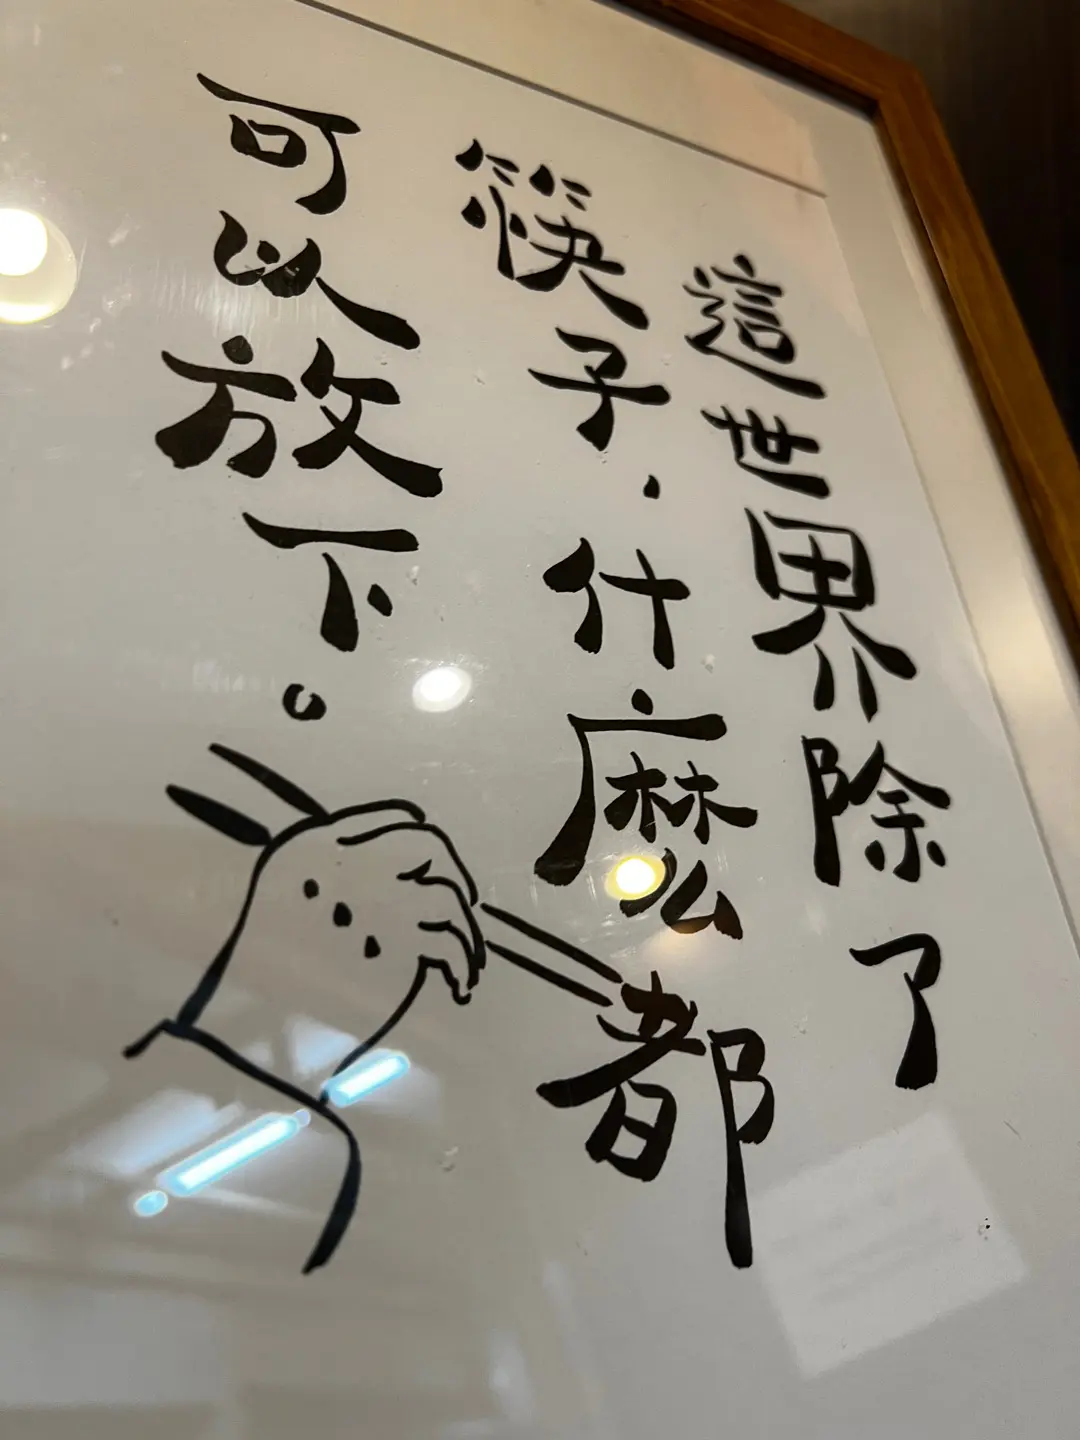 這世界除了
筷子.什麼都
可以放下。